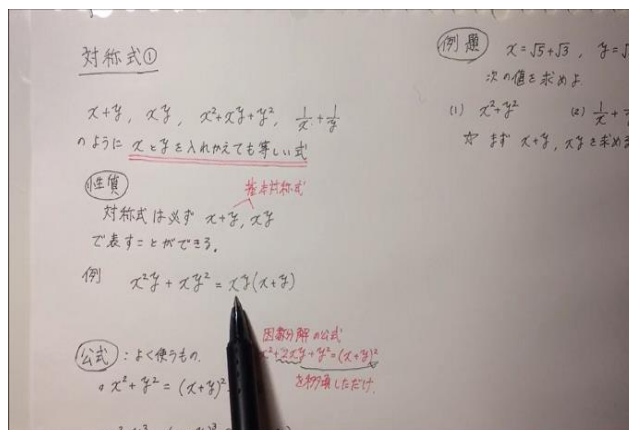 対称式①
x+y, xy, x²+xy+y², 1/x+1/y
のように xとyを入れかえても等しい式
性質
基本対称式
対称式は必ず x+y, xy
で表すことができる。
例 x²y + xy² = xy(x+y)
公式 : よく使うもの.
因数分解の公式
x²+2xy+y²=(x+y)²
を移項しただけ.
x²+y² = (x+y)²
例題 x=√5+√3, y=√
次の値を求めよ
(1) x²+y² (2) 1/x+
☆ まず x+y, xyを求め